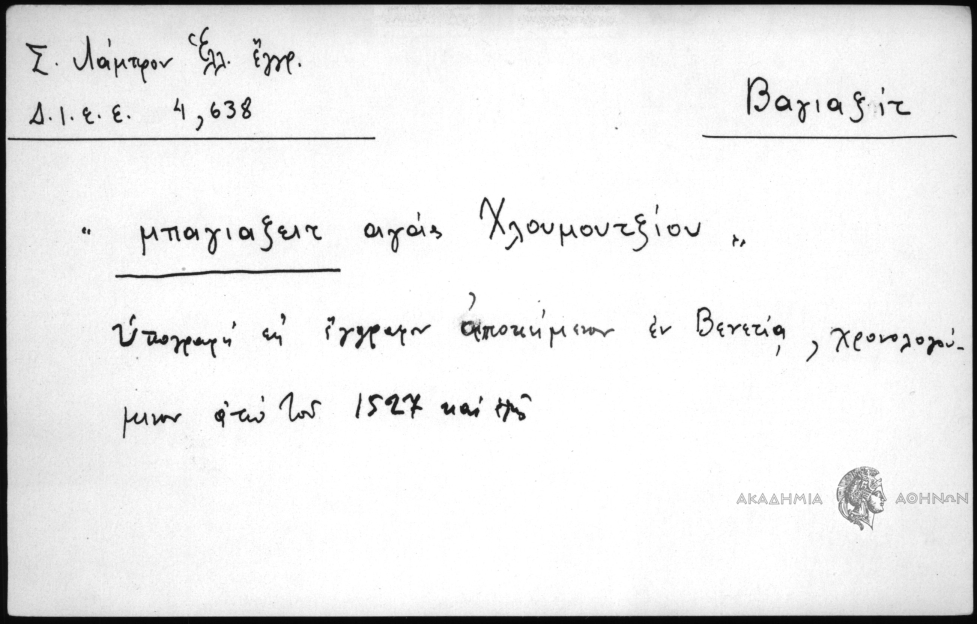 Σ. Λάμπρου Ἑλλ. ἔγγρ.
Δ.Ι.Ε.Ε. 4, 638
Βαγιαζίτ
" μπαγιαζειτ αγάς Χλουμουτζίου "
ὑπογραφή εἰς ἔγγραφον ἀποκείμενον ἐν Βενετίᾳ, χρονολογού-
μενον ἀπό τοῦ 1527 καὶ ἑξῆς
ΑΚΑΔΗΜΙΑ ΑΘΗΝΩΝ